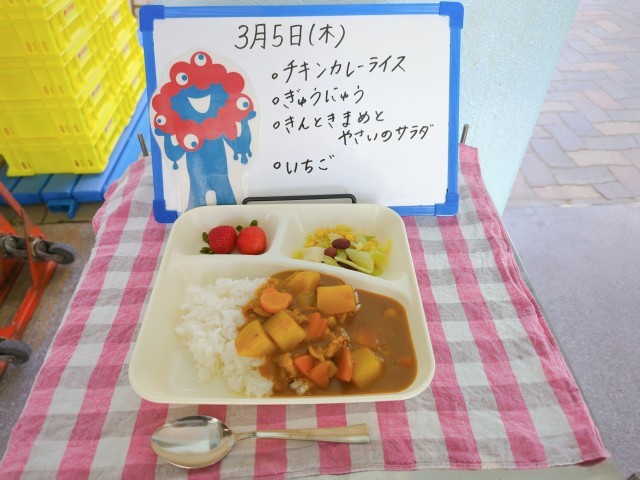 3月5日(木)
。チキンカレーライス
。ぎゅうにゅう
。きんときまめと
やさいのサラダ
。いちご